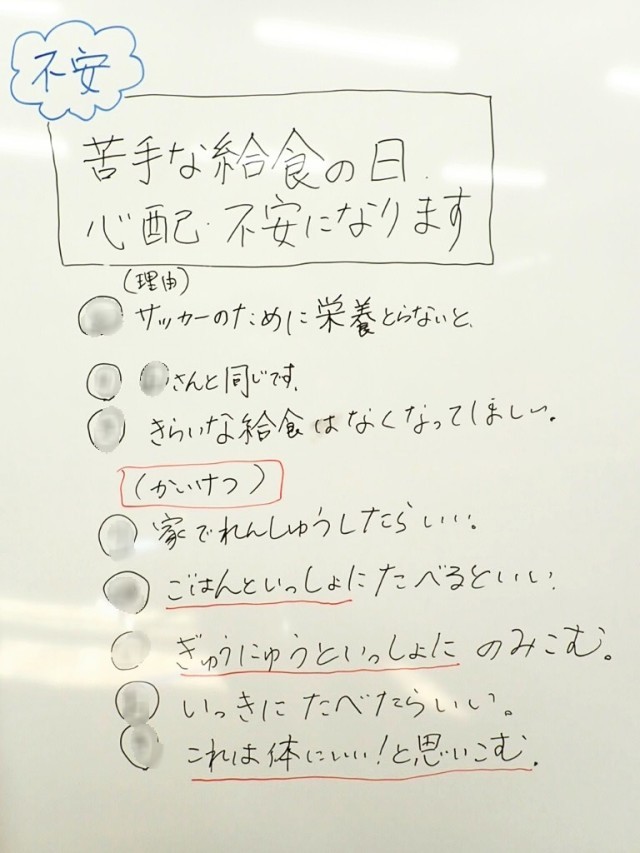 不安
苦手な給食の日.
心配・不安になります
(理由)
サッカーのために栄養とらないと、
さんと同じです.
きらいな給食はなくなってほしい。
(かいけつ)
家でれんしゅうしたらいい。
ごはんといっしょにたべるといい.
ぎゅうにゅうといっしょにのみこむ。
いっきにたべたらいい。
これは体にいい!と思いこむ.